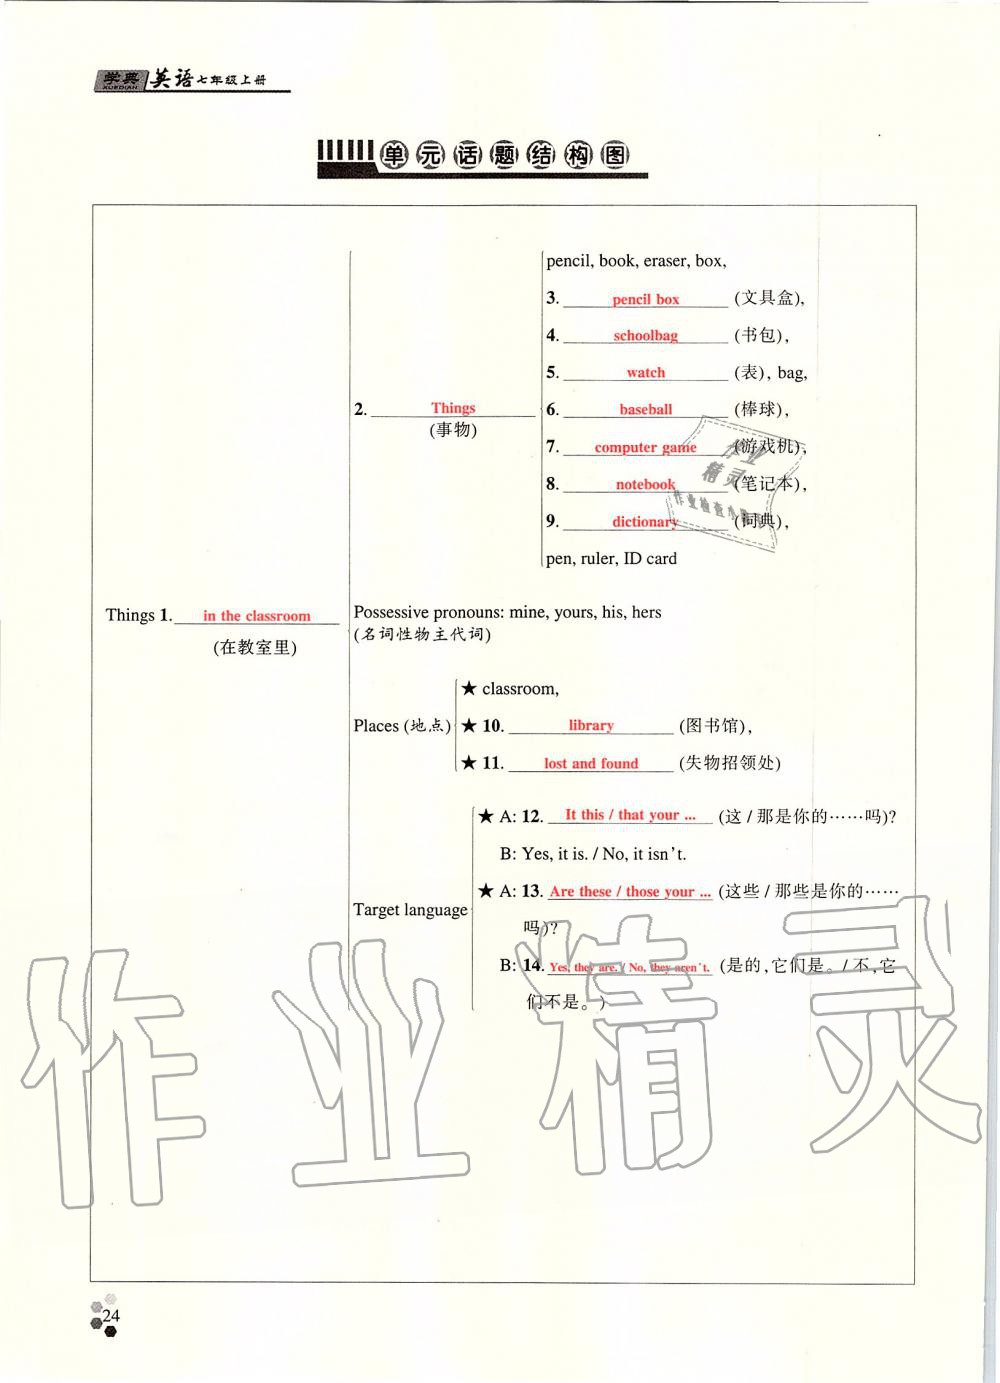 学典 英语七年级上册
XUEDIAN
单元话题结构图
pencil, book, eraser, box,
3. pencil box (文具盒),
4. schoolbag (书包),
5. watch (表), bag,
2. Things
(事物)
6. baseball (棒球),
7. computer game (游戏机),
8. notebook (笔记本),
9. dictionary (词典),
pen, ruler, ID card
Things 1. in the classroom
(在教室里)
Possessive pronouns: mine, yours, his, hers
(名词性物主代词)
★ classroom,
Places (地点) ★ 10. library (图书馆),
★ 11. lost and found (失物招领处)
★ A: 12. It this / that your ... (这 / 那是你的……吗)?
B: Yes, it is. / No, it isn't.
★ A: 13. Are these / those your ... (这些 / 那些是你的……
Target language
吗)?
B: 14. Yes, they are. / No, they aren't. (是的,它们是。/ 不,它
们不是。)
作业精灵
作业
精灵
24